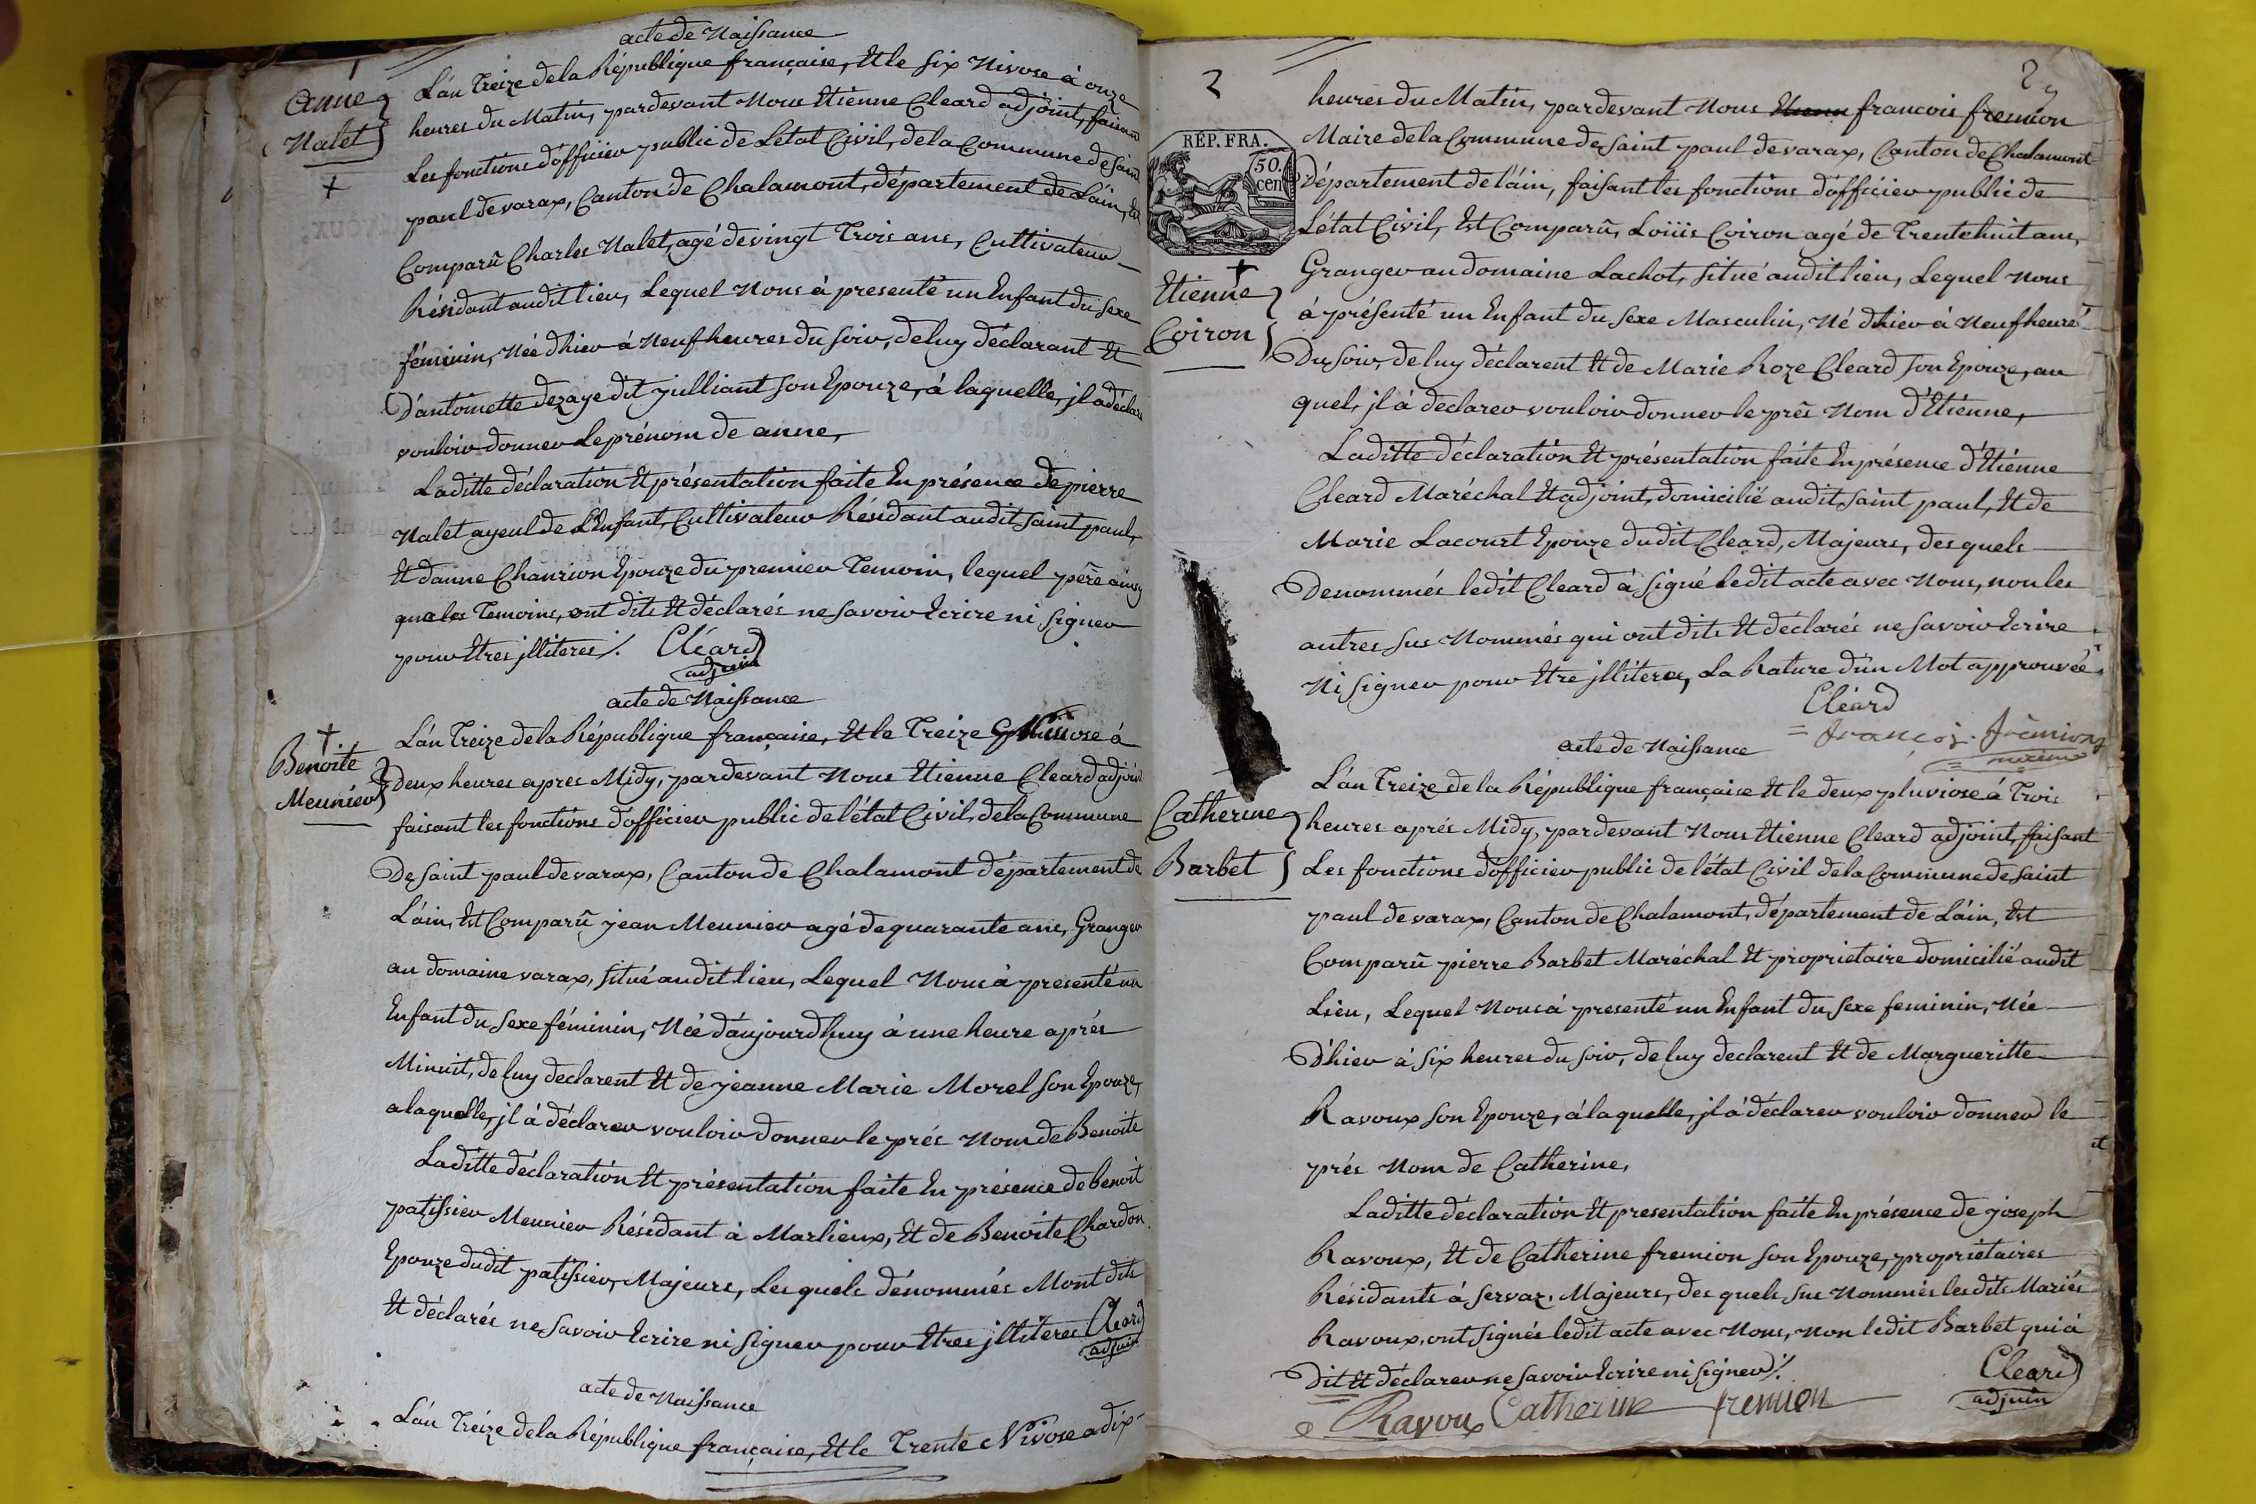 acte de Naissance
Anne
Nalet
L'an Treize de la République française, Et le Six Nivose à onze
heures du Matin, pardevant Nous Etienne Cleard adjoint, faisant
Les fonctions d'officier public de L'etat Civil, de la Commune de Saint
paul de varax, Canton de Chalamont, département de L'ain, Est
Comparû Charles Nalet, agé de vingt Trois ans, Cultivateur
Résidant audit lieu, Lequel Nous à presenté un Enfant du Sexe
féminin, Née d'hier à Neuf heures du Soir, de luy déclarant Et
D'antoinette dezaye dit julliant Son Epouze, à laquelle, jl a déclaré
vouloir donner Le prénom de anne,
Laditte déclaration Et présentation faite En présence de pierre
Nalet ayeul de L'Enfant, Cultivateur Résidant audit Saint paul,
Et d'anne Chanrion Epouze du premier Temoin, lequel père ainsy
que les Temoins, ont dits Et déclarés ne Savoir Ecrire ni Signer
pour Etres jlliteres ./. Cléard
adjoin
acte de Naissance
Benoite
Meunier
L'an Treize de la République française, Et le Treize Nivose à
Deux heures apres Midy, pardevant Nous Etienne Cleard adjoint
faisant les fonctions d'officier public de l'état Civil, de la Commune
De Saint paul de varax, Canton de Chalamont département de
L'ain, Est Comparû jean Meunier agé de quarante ans, Granger
au domaine varax, Situé audit lieu, Lequel Nous à presenté un
Enfant du Sexe féminin, Née d'aujourdhuy à une heure aprés
Minuit, de luy declarent Et de jeanne Marie Morel Son Epouze,
a laquelle, jl à déclarer vouloir donner le prés Nom de Benoite
Laditte déclaration Et présentation faite En présence de benoit
patissier Meunier Résidant à Marlieux, Et de Benoite Chardon
Epouze dudit patissier, Majeurs, Lesquels dénommés M'ont dits
Et déclarés ne Savoir Ecrire ni Signer pour Etres jlliteres Cleard
adjoin
acte de Naissance
L'an Treize de la République française, Et le Trente Nivose a dix
2
RÉP. FRA.
50.
cen
Etienne
Coiron
heures du Matin, pardevant Nous Etienne francois fremion
Maire de la Commune de Saint paul de varax, Canton de Chalamont
Département de l'ain, faisant les fonctions d'officier public de
L'état Civil, Est Comparû, Loüis Coiron agé de Trente huit ans,
Granger au domaine Lachot, Situé audit lieu, Lequel Nous
à présenté un Enfant du Sexe Masculin, Né d'hier à Neuf heures
Du Soir, de luy déclarent Et de Marie Roze Cleard Son Epouze, au
quel, jl à declarer vouloir donner le prés Nom d'Etienne,
Laditte déclaration Et présentation faite En présence d'Etienne
Cleard Maréchal Et adjoint, domicilié audit Saint paul, Et de
Marie Lacourt Epouze dudit Cleard, Majeurs, des quels
Denommés ledit Cleard à Signé ledit acte avec Nous, non les
autres Sus Nommés qui ont dits Et déclarés ne Savoir Ecrire
Ni Signer pour Etre jlliteres, La Rature d'un Mot approuvée
Cléard
françois fremion
acte de Naissance
Catherine
Barbet
L'an Treize de la République française Et le deux pluviose à Trois
heures aprés Midy, pardevant Nous Etienne Cleard adjoint, faisant
Les fonctions d'officier public de l'état Civil de la Commune de Saint
paul de varax, Canton de Chalamont, département de L'ain, Est
Comparû pierre Barbet Maréchal Et proprietaire domicilié audit
Lieu, Lequel Nous à presenté un Enfant du Sexe feminin, Née
D'hier à Six heures du Soir, de luy declarent Et de Margueritte
Ravoux Son Epouze, à laquelle, jl à déclarer vouloir donner le
prés Nom de Catherine,
Laditte déclaration Et presentation faite En présence de joseph
Ravoux, Et de Catherine fremion Son Epouze, propriétaires
Résidants à Servaz, Majeurs, des quels Sus Nommés lesdits Mariés
Ravoux, ont Signés ledit acte avec Nous, Non ledit Barbet qui à
Dit Et déclarer ne Savoir Ecrire ni Signer ./.
Cleard
adjoin
Ravoux Catherine fremion